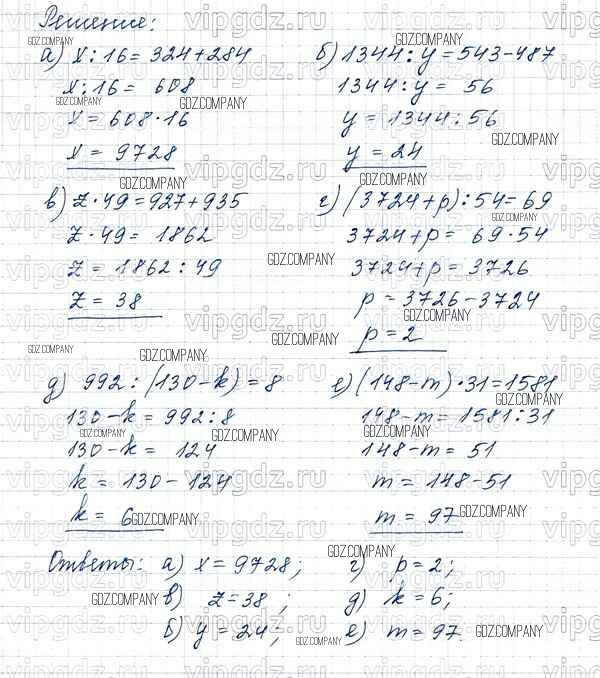 Решение:
а) x:16 = 324+284
x:16 = 608
x = 608·16
x = 9728
б) 1344:y = 543-487
1344:y = 56
y = 1344:56
y = 24
в) z·49 = 927+935
z·49 = 1862
z = 1862:49
z = 38
г) (3724+p):54 = 69
3724+p = 69·54
3724+p = 3726
p = 3726-3724
p = 2
д) 992:(130-k) = 8
130-k = 992:8
130-k = 124
k = 130-124
k = 6
е) (148-m)·31 = 1581
148-m = 1581:31
148-m = 51
m = 148-51
m = 97
Ответы: а) x = 9728; г) p = 2;
в) z = 38; д) k = 6;
б) y = 24; е) m = 97.
GDZ.COMPANY
vipgdz.ru